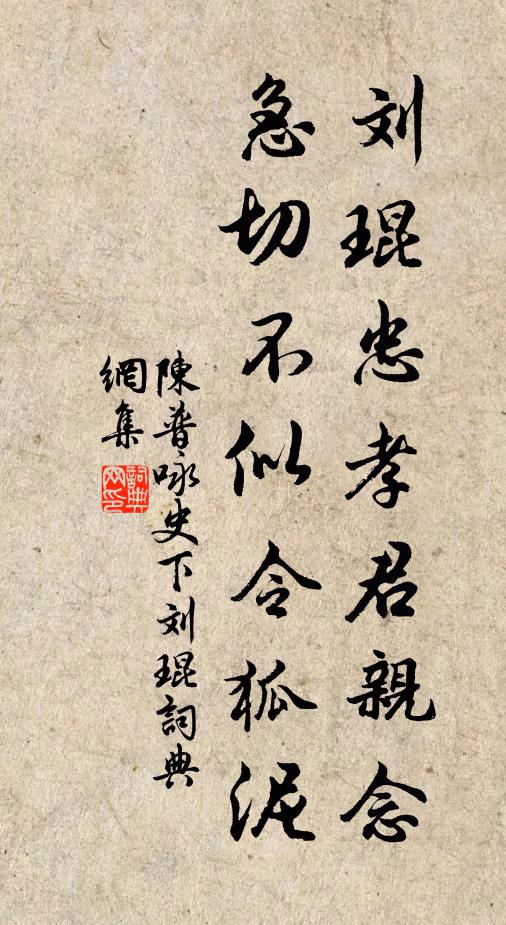 刘琨忠孝君親念
急切不似令狐泥
陳普咏史下刘琨詞典
網集
詞典網印